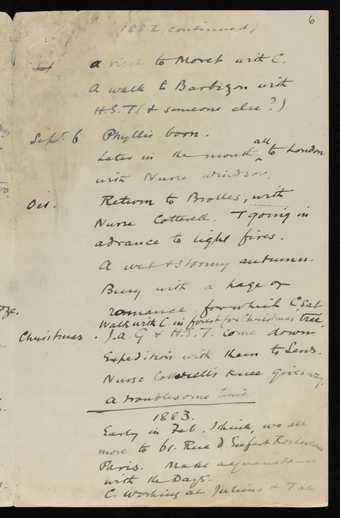 6
1882 continued)
a visit to Moret with C.
A walk to Barbizon with
H.S.T. (& someone else?)
Sept. 6 Phyllis born.
Later in the month all to London
with Nurse Windsor.
Oct. Return to Brolles, with
Nurse Cotterell. T going in
advance to light fires.
A wet & stormy autumn.
Busy with a page of
romance for which C sat
Walk with C. in forest for Christmas tree.
Christmas. J.A.G & H.S.T. come down
Expedition with them to Sens.
Nurse Cotterell's knee gives way.
a troublesome time
1883.
Early in Feb. I think, we all
move to 61. Rue D Enfert Rochereau
Paris. Make acquaintance
with the Days.
C. working at Julians &